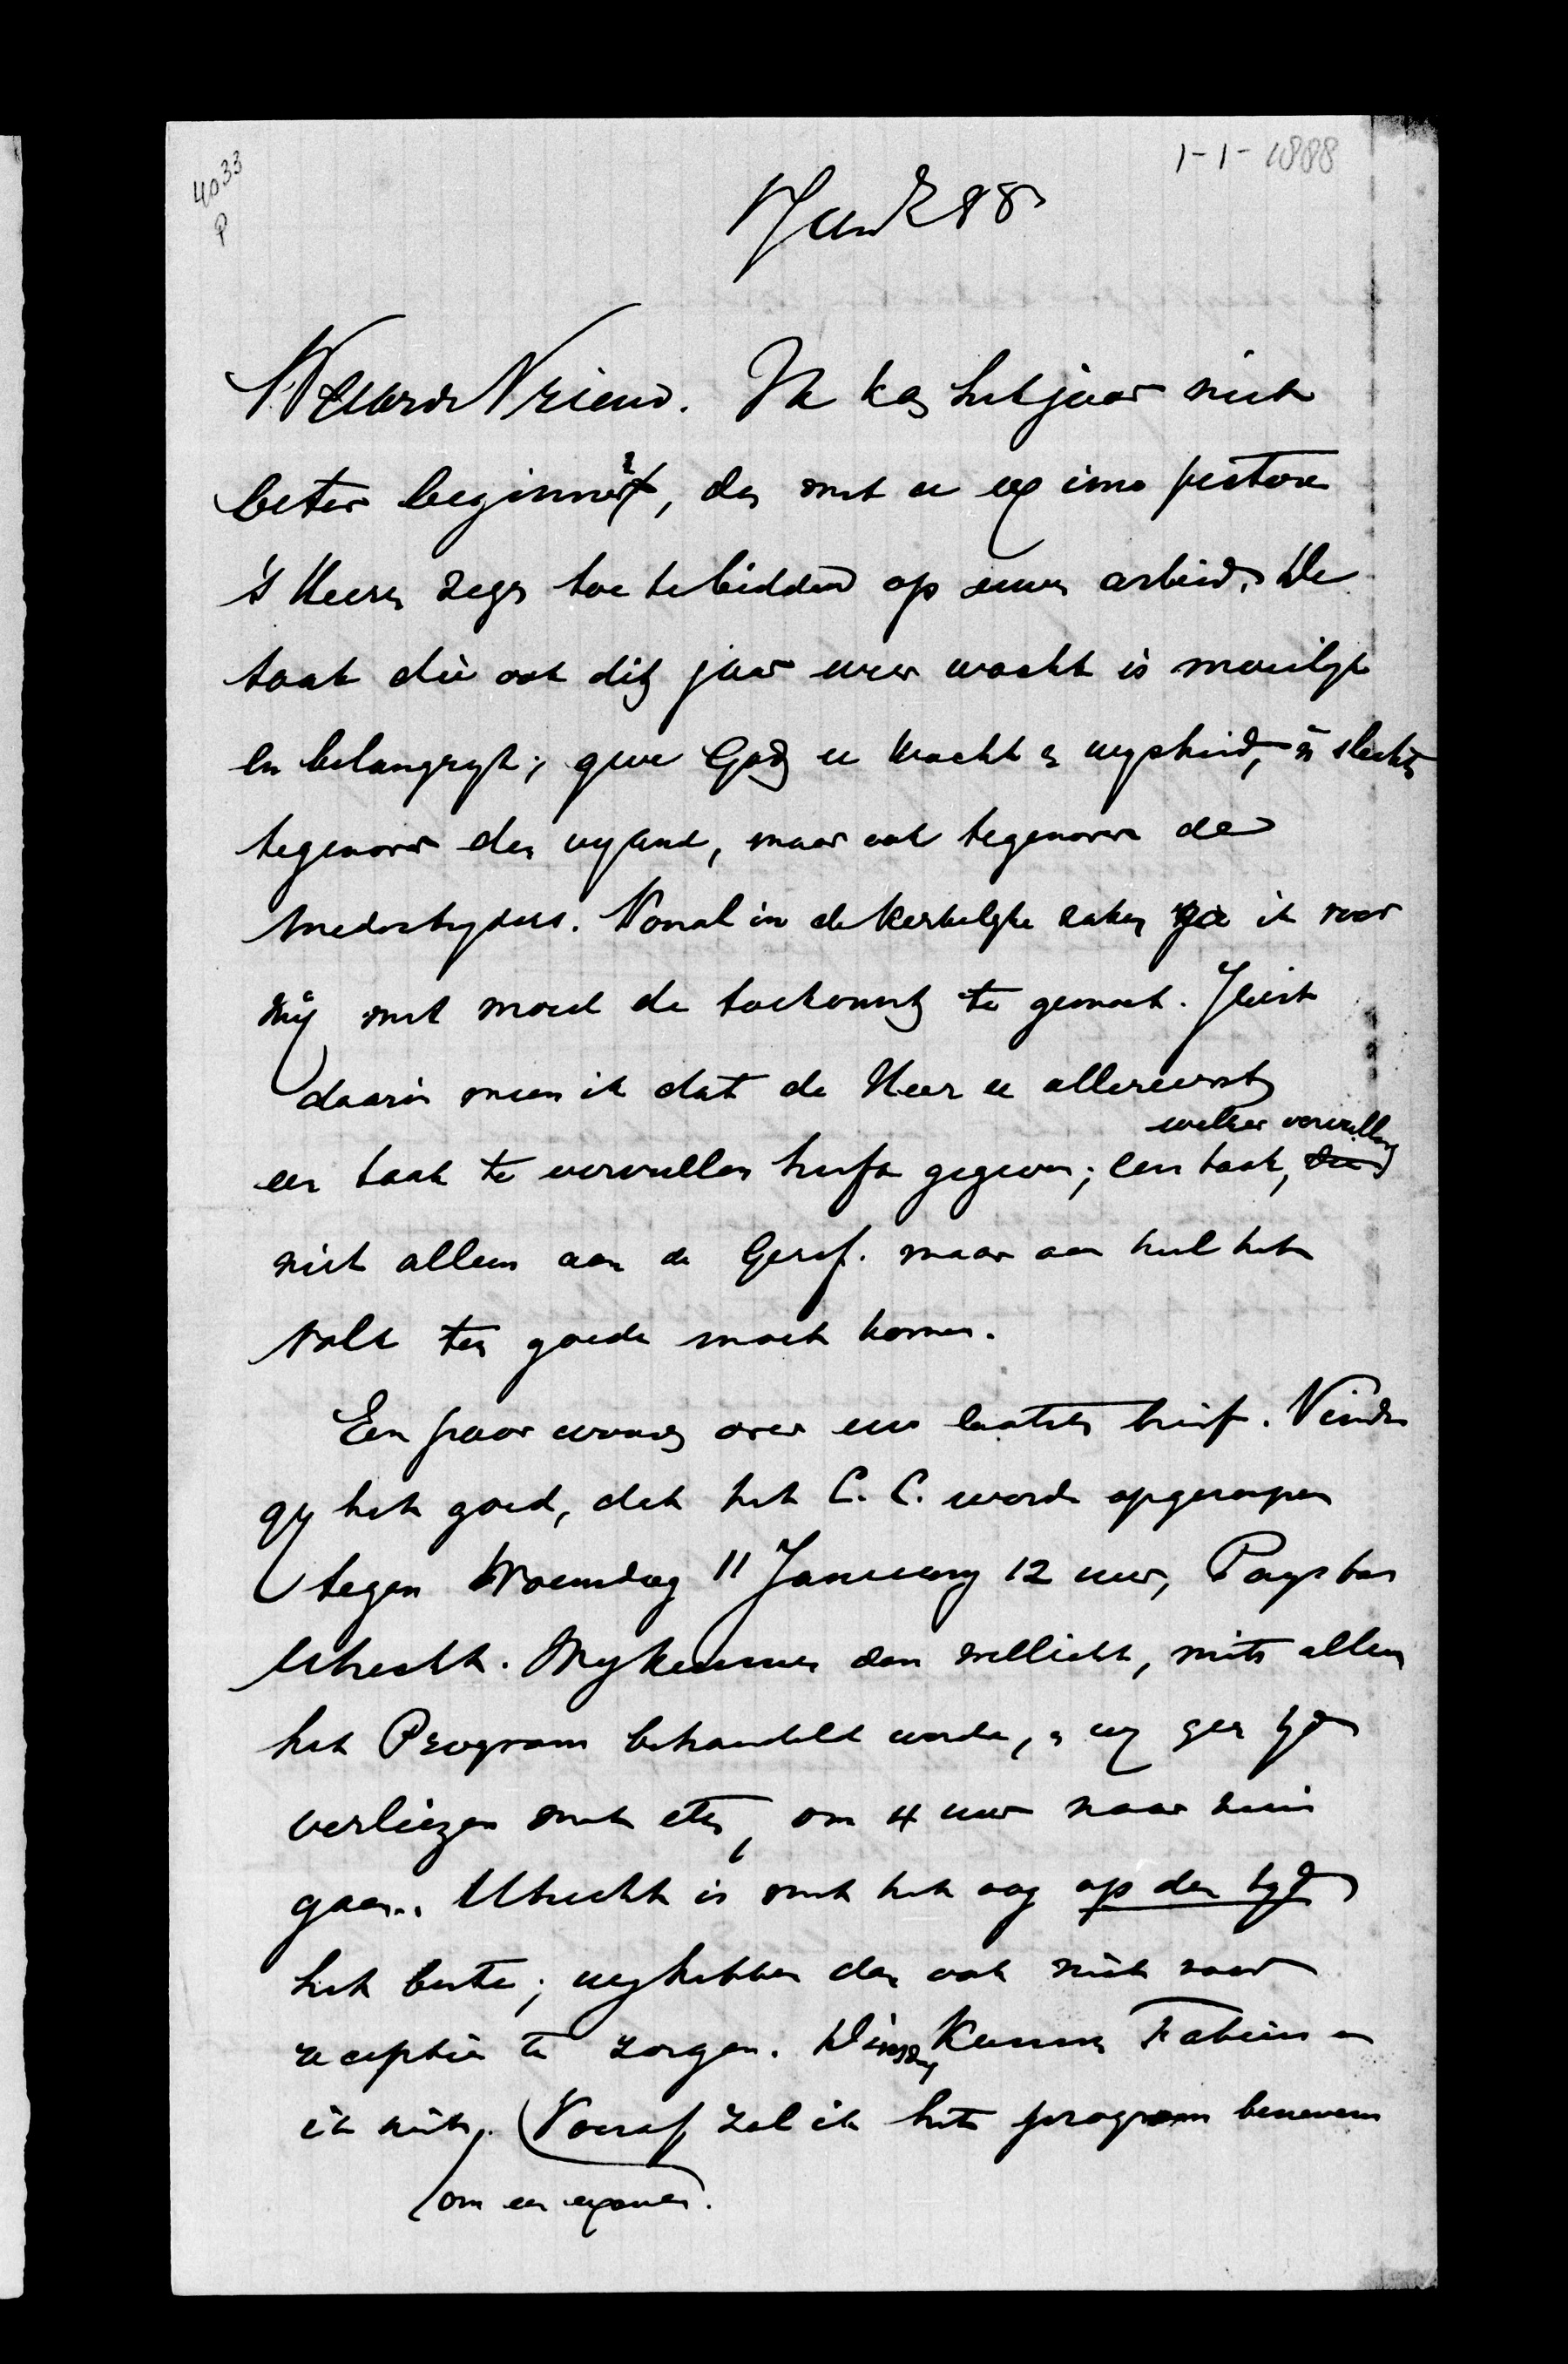 4033
P
1-1-1888
1 Jan 88
Waarde Vriend. Ik kan het jaar niet
beter beginnen, dan met u ex imo pectore
's Heeren zegen toe te bidden op uwen arbeid. De
taak die ook dit jaar uwer wacht is moeilijk
en belangrijk; geve God u kracht en wijsheid, niet slechts
tegenover den vijand, maar ook tegenover de
medestrijders. Vooral in de kerkelijke zaken ga ik voor
mij met moed de toekomst te gemoet. Juist
daarin meen ik dat de Heer u allereerst
een taak te vervullen heeft gegeven; een taak, welker vervulling
niet alleen aan de Geref. maar aan heel het
volk ten goede moet komen.
Een paar woorden over uw laatsten brief. Vindt
gij het goed, dat het C. C. worde opgeroepen
tegen Woensdag 11 January 12 uur, Pays bas
Utrecht. Wij kunnen dan wellicht, mits alleen
het Program behandeld worde, en wij geen tijd
verliezen met eten, om 4 uur naar huis
gaan. Utrecht is met het oog op den tijd
het beste; wij hebben dan ook niet voor
receptie te zorgen. Dinsdag kunnen Fabius en
ik niet, om een examen.
Vooraf zal ik het program benevens